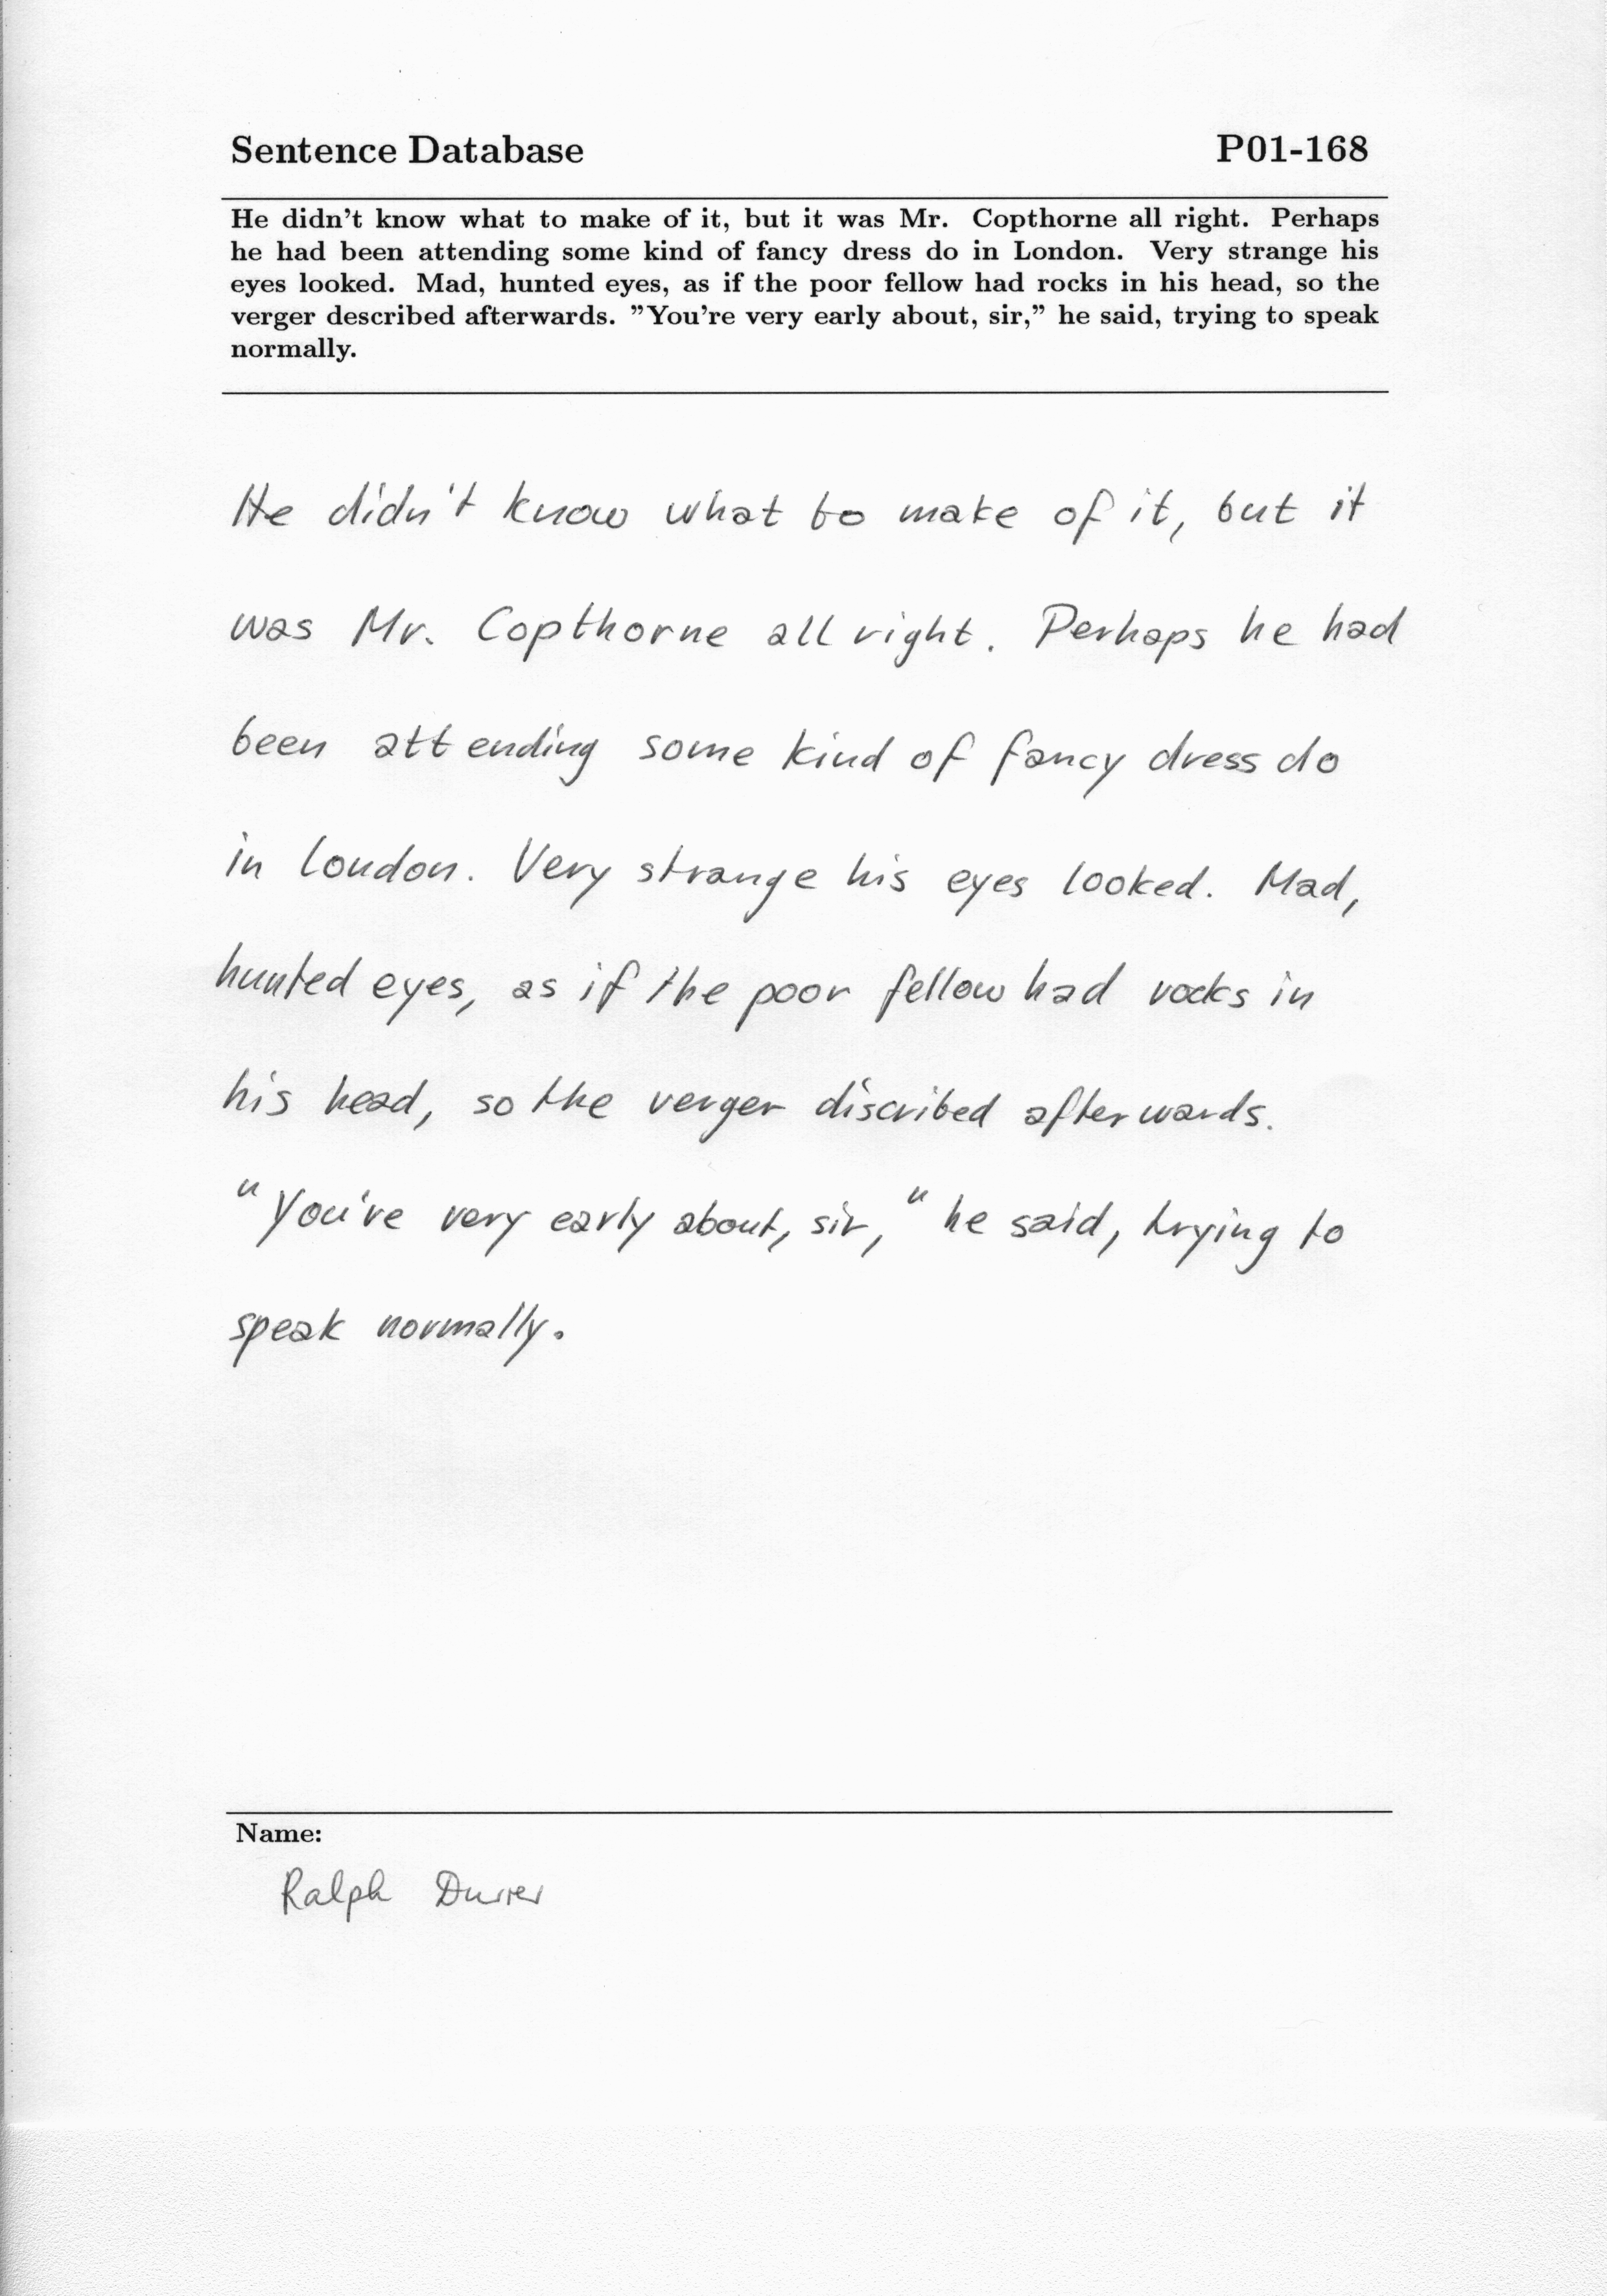 Sentence Database P01-168
He didn't know what to make of it, but it was Mr. Copthorne all right. Perhaps
he had been attending some kind of fancy dress do in London. Very strange his
eyes looked. Mad, hunted eyes, as if the poor fellow had rocks in his head, so the
verger described afterwards. "You're very early about, sir," he said, trying to speak
normally.
He didn't know what to make of it, but it
was Mr. Copthorne all right. Perhaps he had
been attending some kind of fancy dress do
in London. Very strange his eyes looked. Mad,
hunted eyes, as if the poor fellow had rocks in
his head, so the verger discribed afterwards.
"You're very early about, sir," he said, trying to
speak normally.
Name:
Ralph